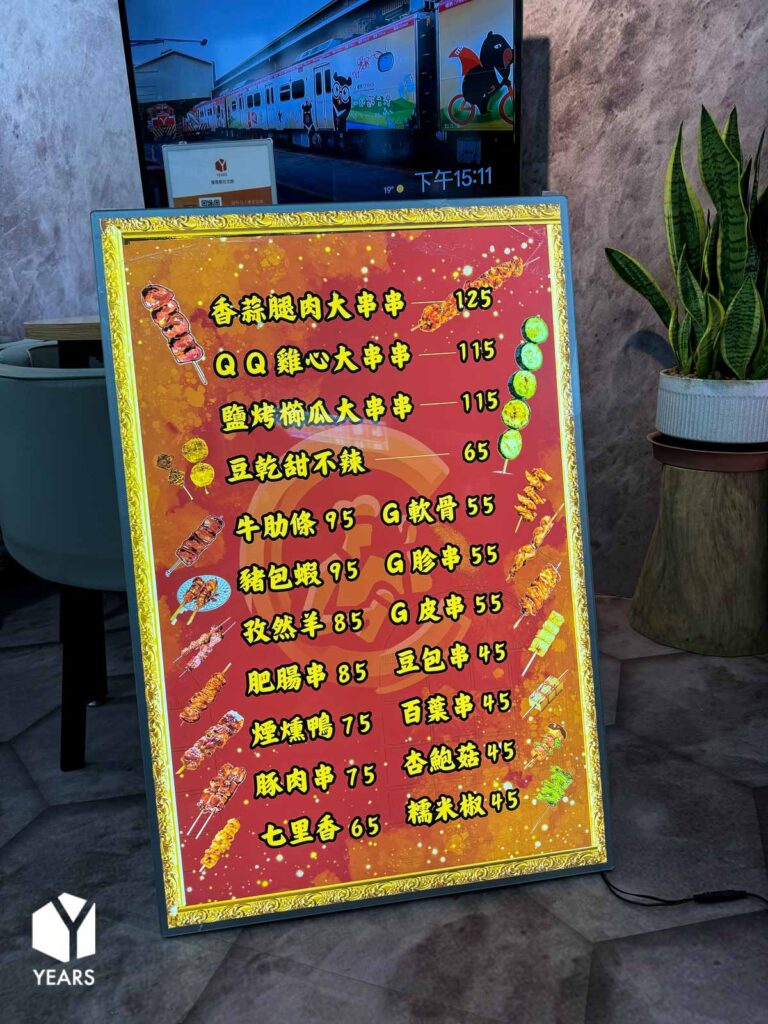 YEARS
19°
下午15:11
香蒜腿肉大串串 125
QQ雞心大串串 115
鹽烤櫛瓜大串串 115
豆乾甜不辣 65
牛肋條 95 G軟骨 55
豬包蝦 95 G胗串 55
孜然羊 85 G皮串 55
肥腸串 85 豆包串 45
煙燻鴨 75 百葉串 45
豚肉串 75 杏鮑菇 45
七里香 65 糯米椒 45
Y
YEARS